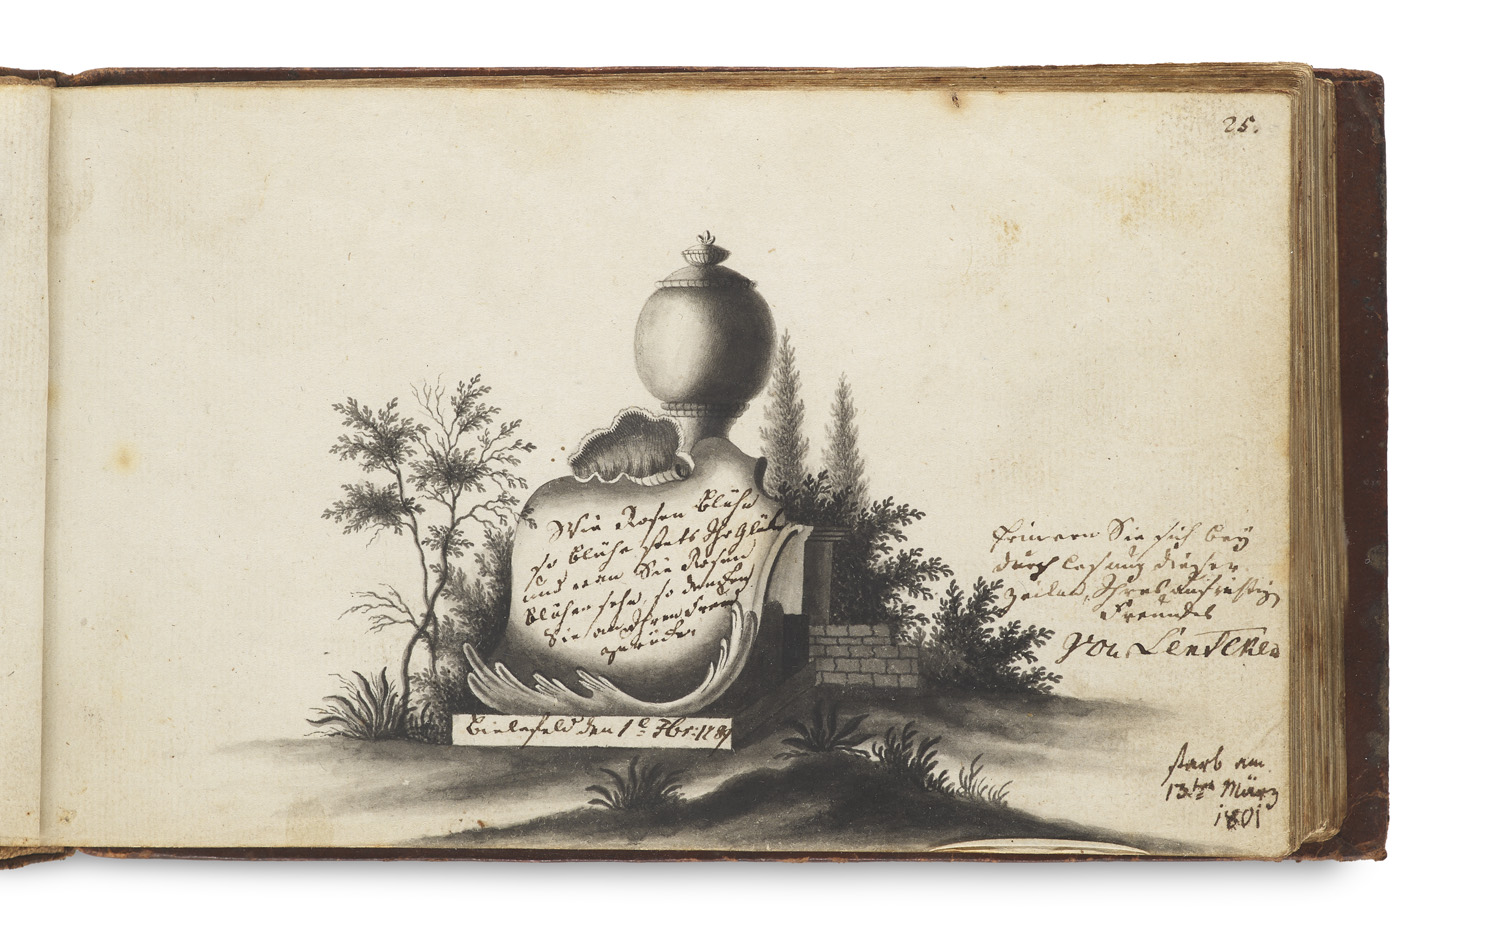 25.
Wie Rosen blühn
so blühe stets Ihr Glük
und wan Sie Rosen
blühen sehn, so denken
Sie an Ihren Freund
zurück.
Bielefeld den 1t 7br: 1789
Erinnern Sie sich bey
durch lesung dieser
Zeilen, Ihres aufrichtig
Freundes
von
starb am
13ten März
1801